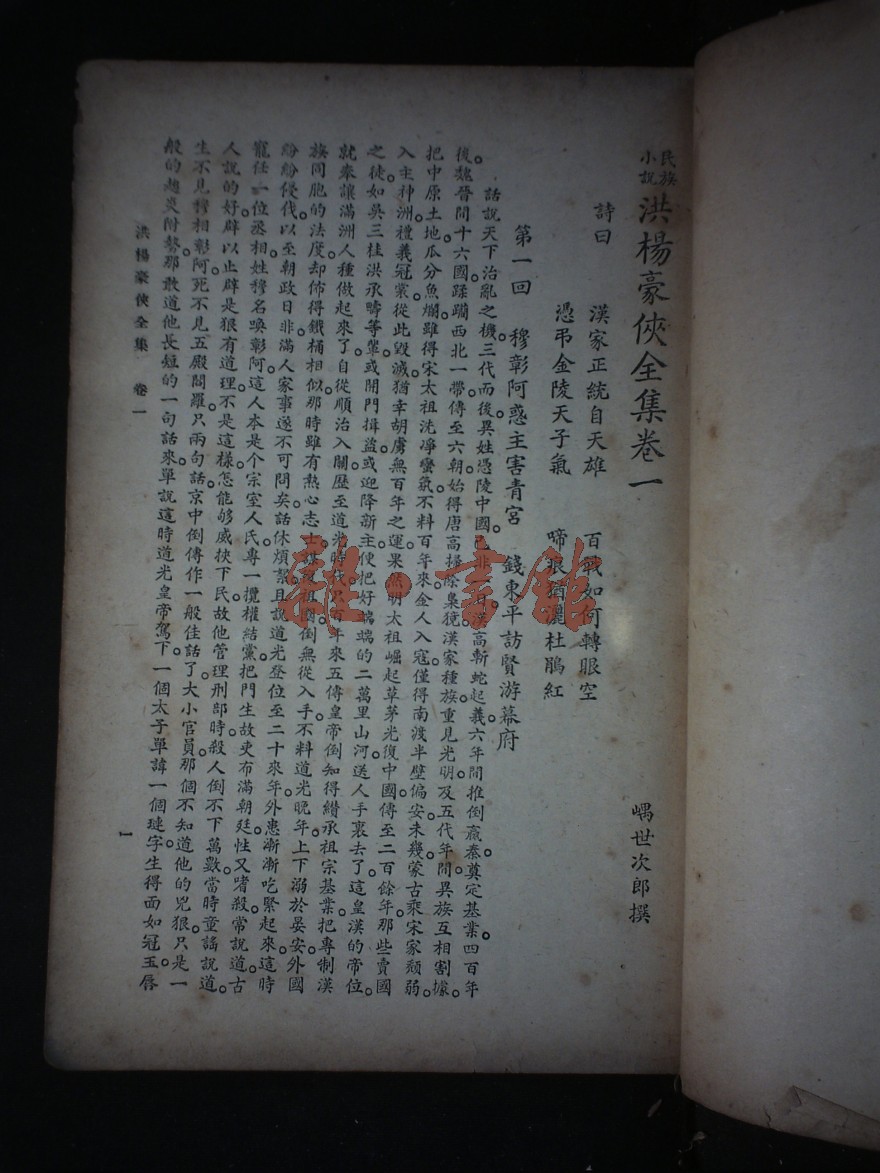 民族小說 洪楊豪俠全集卷一
嵎世次郎撰
詩曰
漢家正統自天雄 百戰如何轉眼空
憑弔金陵天子氣 啼痕猶灑杜鵑紅
第一回 穆彰阿惑主害青宮 錢東平訪賢游幕府
話說天下治亂之機。三代而後。異姓憑陵中國。已非一日。漢高斬蛇起義。六年間推倒嬴秦。奠定基業。四百年
後。魏晉間十六國蹂躪西北一帶。傳至六朝。始得唐高掃除梟獍。漢家種族。重見光明。及五代年間。異族互相割據。
把中原土地。瓜分魚爛。雖得宋太祖洗凈蠻氛。不料百年來。金人入寇。僅得南渡半壁偏安。未幾蒙古乘宋家頹弱。
入主神洲。禮義冠裳。從此毀滅。猶幸胡虜無百年之運。果然明太祖崛起草茅。光復中國。傳至二百餘年。那些賣國
之徒。如吳三桂洪承疇等輩。或開門揖盜。或迎降新主。便把好端端的二萬里山河。送人手裏去了。這皇漢的帝位。
就來讓滿洲人種做起來了。自從順治入關。歷至道光時代。只百年來。五傳皇帝。倒知得纘承祖宗基業。把專制漢
族同胞的法度。却佈得鐵桶相似。那時雖有熱心志士。謀復祖國。倒無從入手。不料道光晚年。上下溺於晏安。外國
紛紛侵伐。以至朝政日非。滿人家事。遂不可問矣。話休煩絮。且說道光登位。至二十來年。外患漸漸吃緊起來。這時
寵任一位丞相。姓穆名喚彰阿。這人本是个宗室人氏。專一攬權結黨。把門生故吏。布滿朝廷。性又嗜殺。常說道古
人說的好。辟以止辟。是狠有道理。不是這樣。怎能够威挾下民。故他管理刑部時。殺人倒不下萬數。當時童謠說道。
生不見穆相彰阿。死不見五殿閻羅。只兩句話。京中倒傳作一般佳話了。大小官員。那個不知道他的兇狠。只是一
般的趨炎附勢。那敢道他長短的一句話來。單說這時道光皇帝駕下一個太子。單諱一個璉字。生得面如冠玉。唇
洪楊豪俠全集 卷一
1
雜·書館